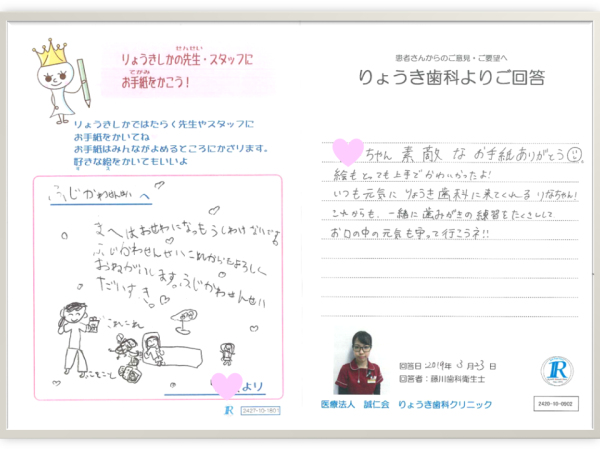 せんせい
りょうきしかの先生・スタッフに
てがみ
お手紙をかこう!
りょうきしかではたらく先生やスタッフに
お手紙をかいてね
お手紙はみんながよめるところにかざります。
好きな絵をかいてもいいよ
す え
ふじかわせんせい へ
まへはおせわになってもうしわけないです
ふじかわせんせいこれからもよろしく
おねがいします。ふじかわせんせい
だいすき。
より
R
2427-10-1801
患者さんからのご意見・ご要望へ
りょうき歯科よりご回答
ちゃん 素敵な お手紙ありがとう
絵もとっても上手でかわいかったよ!
いつも元気に りょうき歯科に来てくれる りなちゃん!
これからも、一緒に歯みがきの練習をたくさんして
お口の中の元気も守って行こうネ!!
回答日 2019年 3月23日
回答者:藤川歯科衛生士
医療法人 誠仁会 りょうき歯科クリニック
R